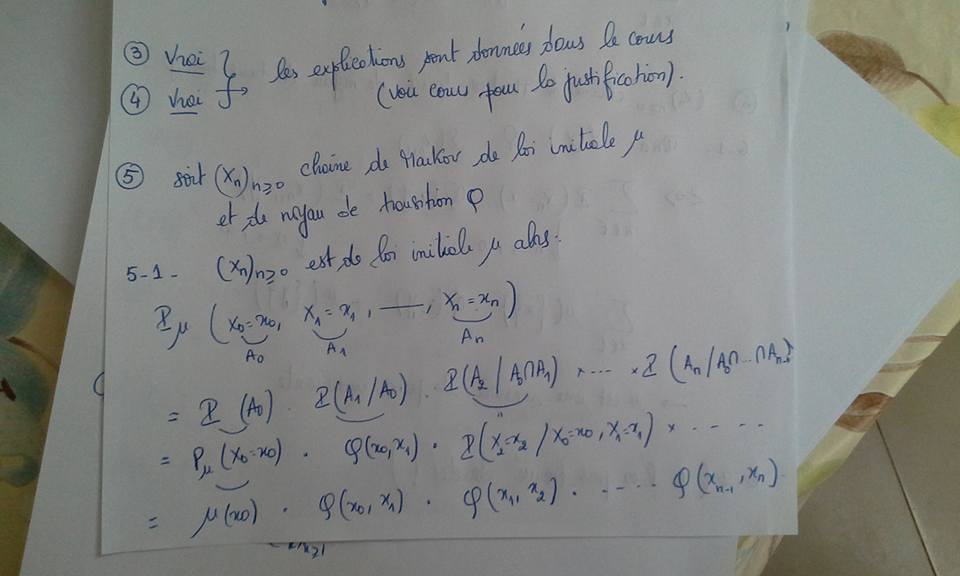 ③ Vrai
④ Vrai
les explications sont données dans le cours
(voir cours pour la justification).
⑤ soit (Xn)n≥0 chaîne de Markov de loi initiale μ
et de noyau de transition Q
5-1- (Xn)n≥0 est de loi initiale μ alors:
ℙμ (X0=x0, X1=x1, ——, Xn=xn)
A0 A1 An
= ℙ (A0) . ℙ(A1/A0) . ℙ(A2/A0∩A1) × ... × ℙ (An/A0∩...∩An-1)
= Pμ (X0=x0) . Q(x0,x1) . ℙ(X2=x2/X0=x0, X1=x1) × - - - -
= μ(x0) . Q(x0,x1) . Q(x1,x2) . - - - - Q(xn-1,xn)